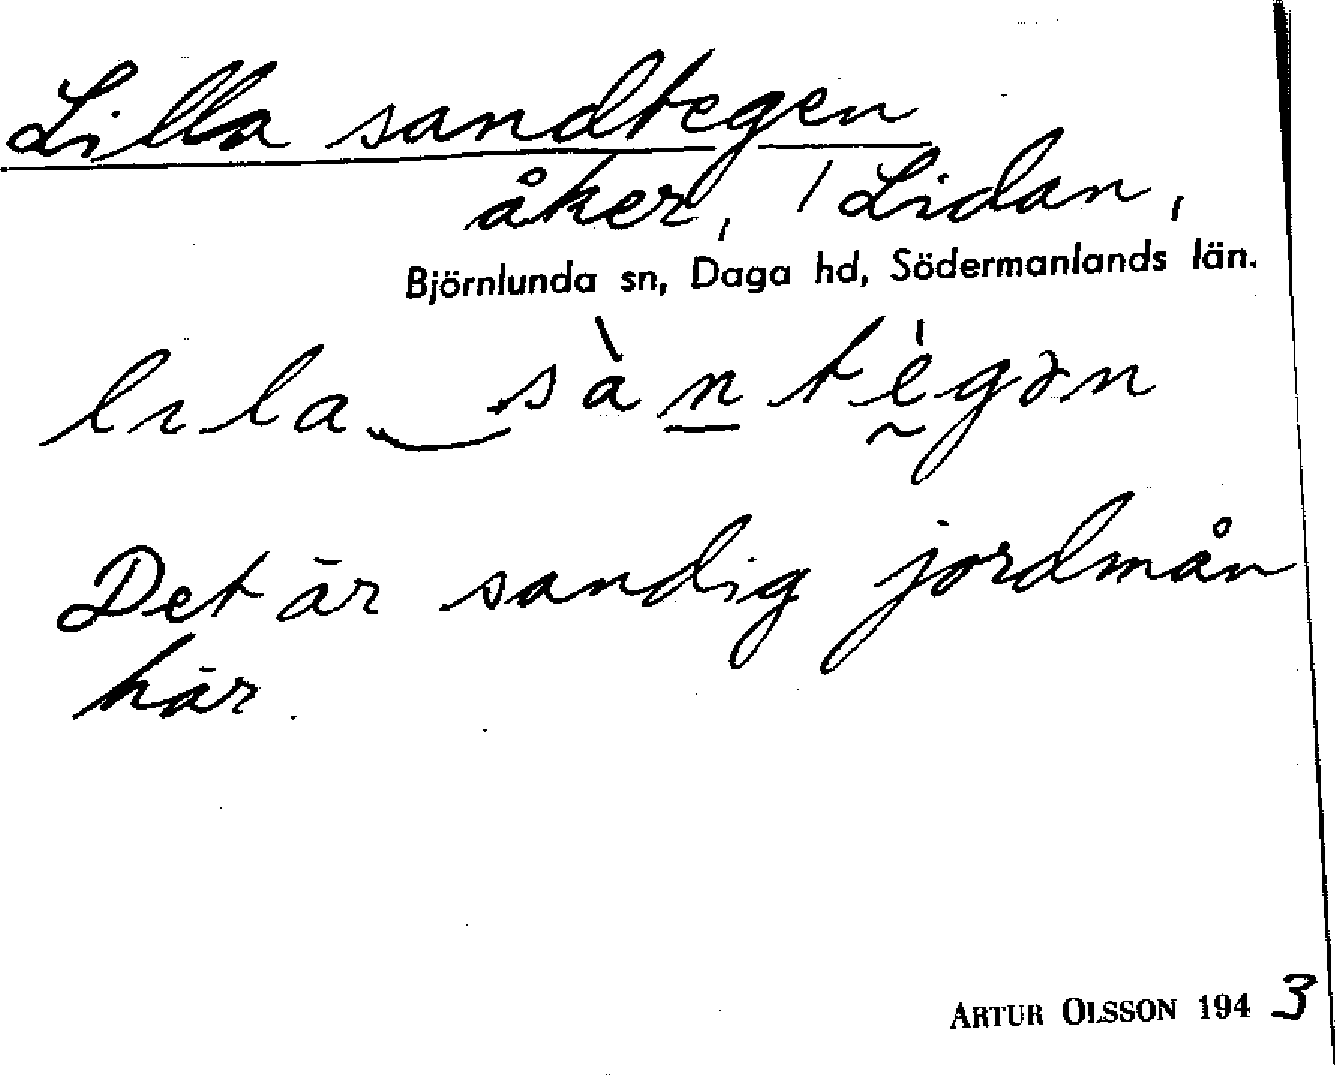 Lilla sandtegen
åker, / Lidan,
Björnlunda sn, Daga hd, Södermanlands län.
lɩla‿sàntègən
Det är sandig jordmån
här.
ARTUR OLSSON 1943